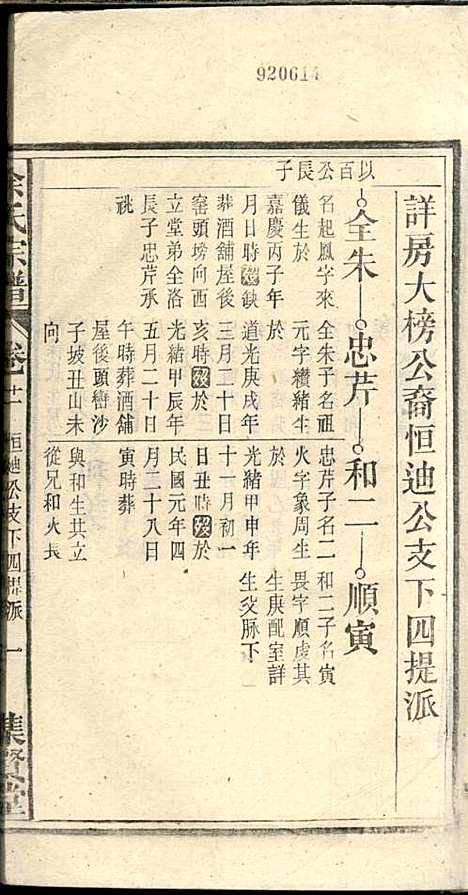 920614
詳房大榜公裔恒迪公支下四提派
以百公長子
全朱
忠芹
和二
順寅
名起鳳字來
儀生於
嘉慶丙子年
月日時歿缺
葬酒舖屋後
窑頭塝向西
立堂弟全洛
長子忠芹承
祧
全朱子名祖
元字纘緒生
於
道光庚戌年
三月二十日
亥時歿於
光緒甲辰年
五月二十日
午時葬酒舖
屋後頭巒沙
子坡丑山未
向
忠芹子名二
火字象周生
於
光緒甲申年
十一月初一
日丑時歿於
民國元年四
月二十八日
寅時葬
與和生共立
從兄和火長
和二子名寅
畏字順虔其
生庚配室詳
生父脉下
余氏宗譜
卷十一
恒迪公支下四提派
一
集賢堂